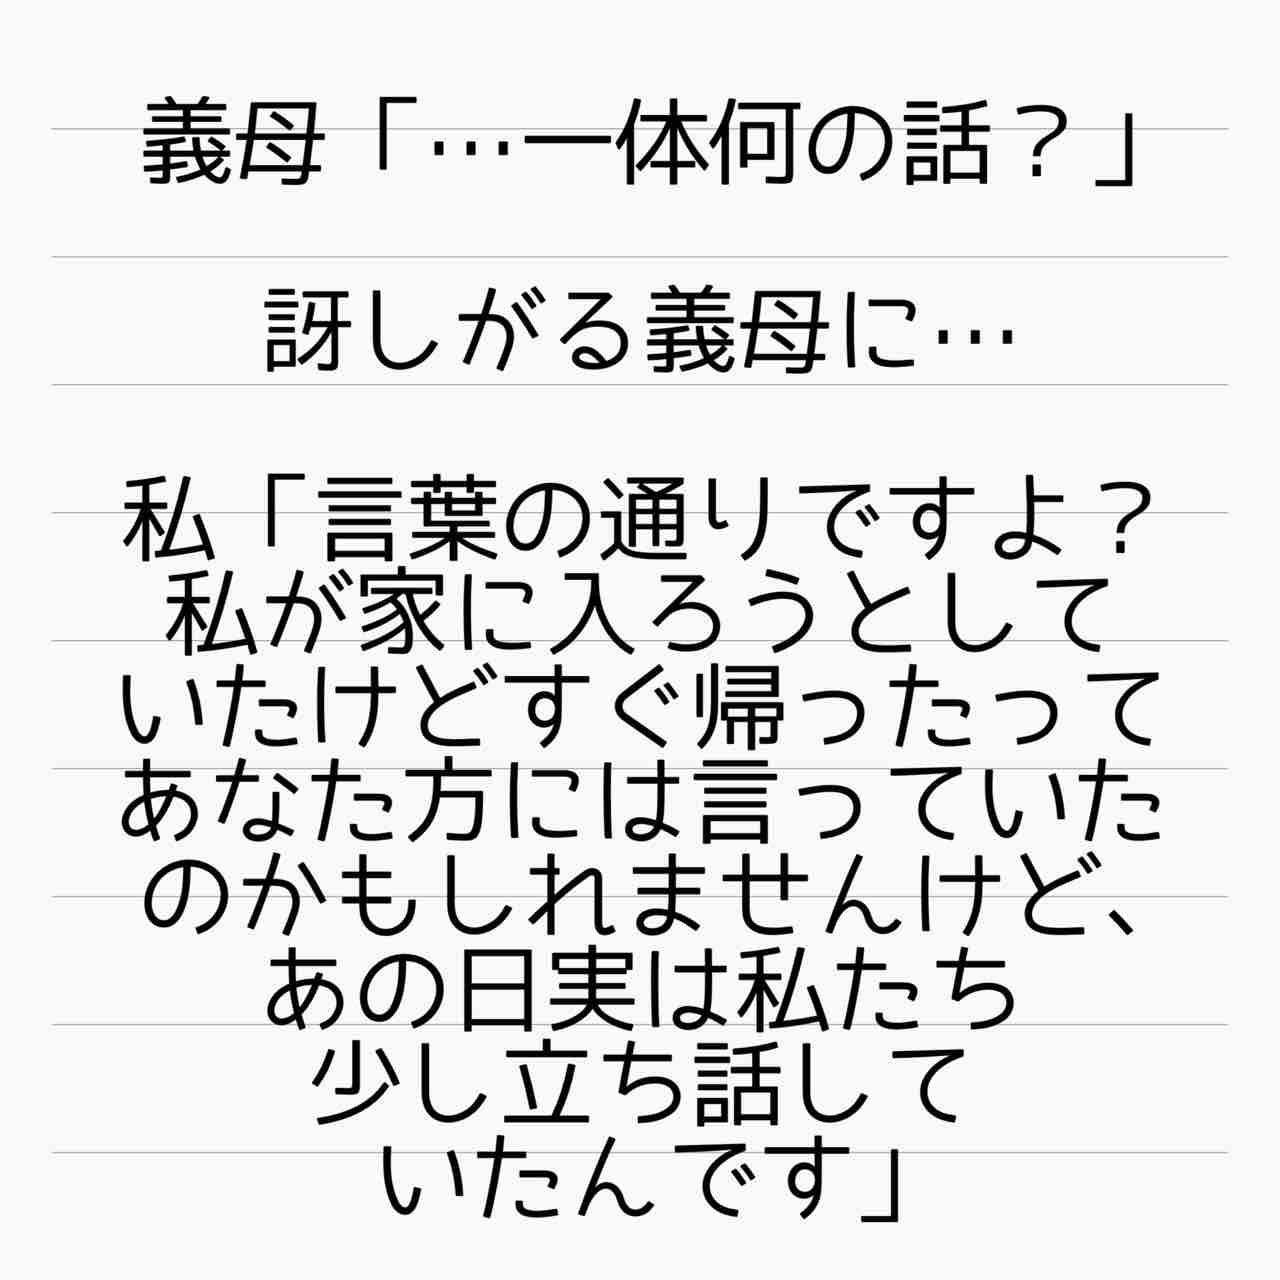 義母「…一体何の話？」
訝しがる義母に…
私「言葉の通りですよ？
私が家に入ろうとして
いたけどすぐ帰ったって
あなた方には言っていた
のかもしれませんけど、
あの日実は私たち
少し立ち話して
いたんです」